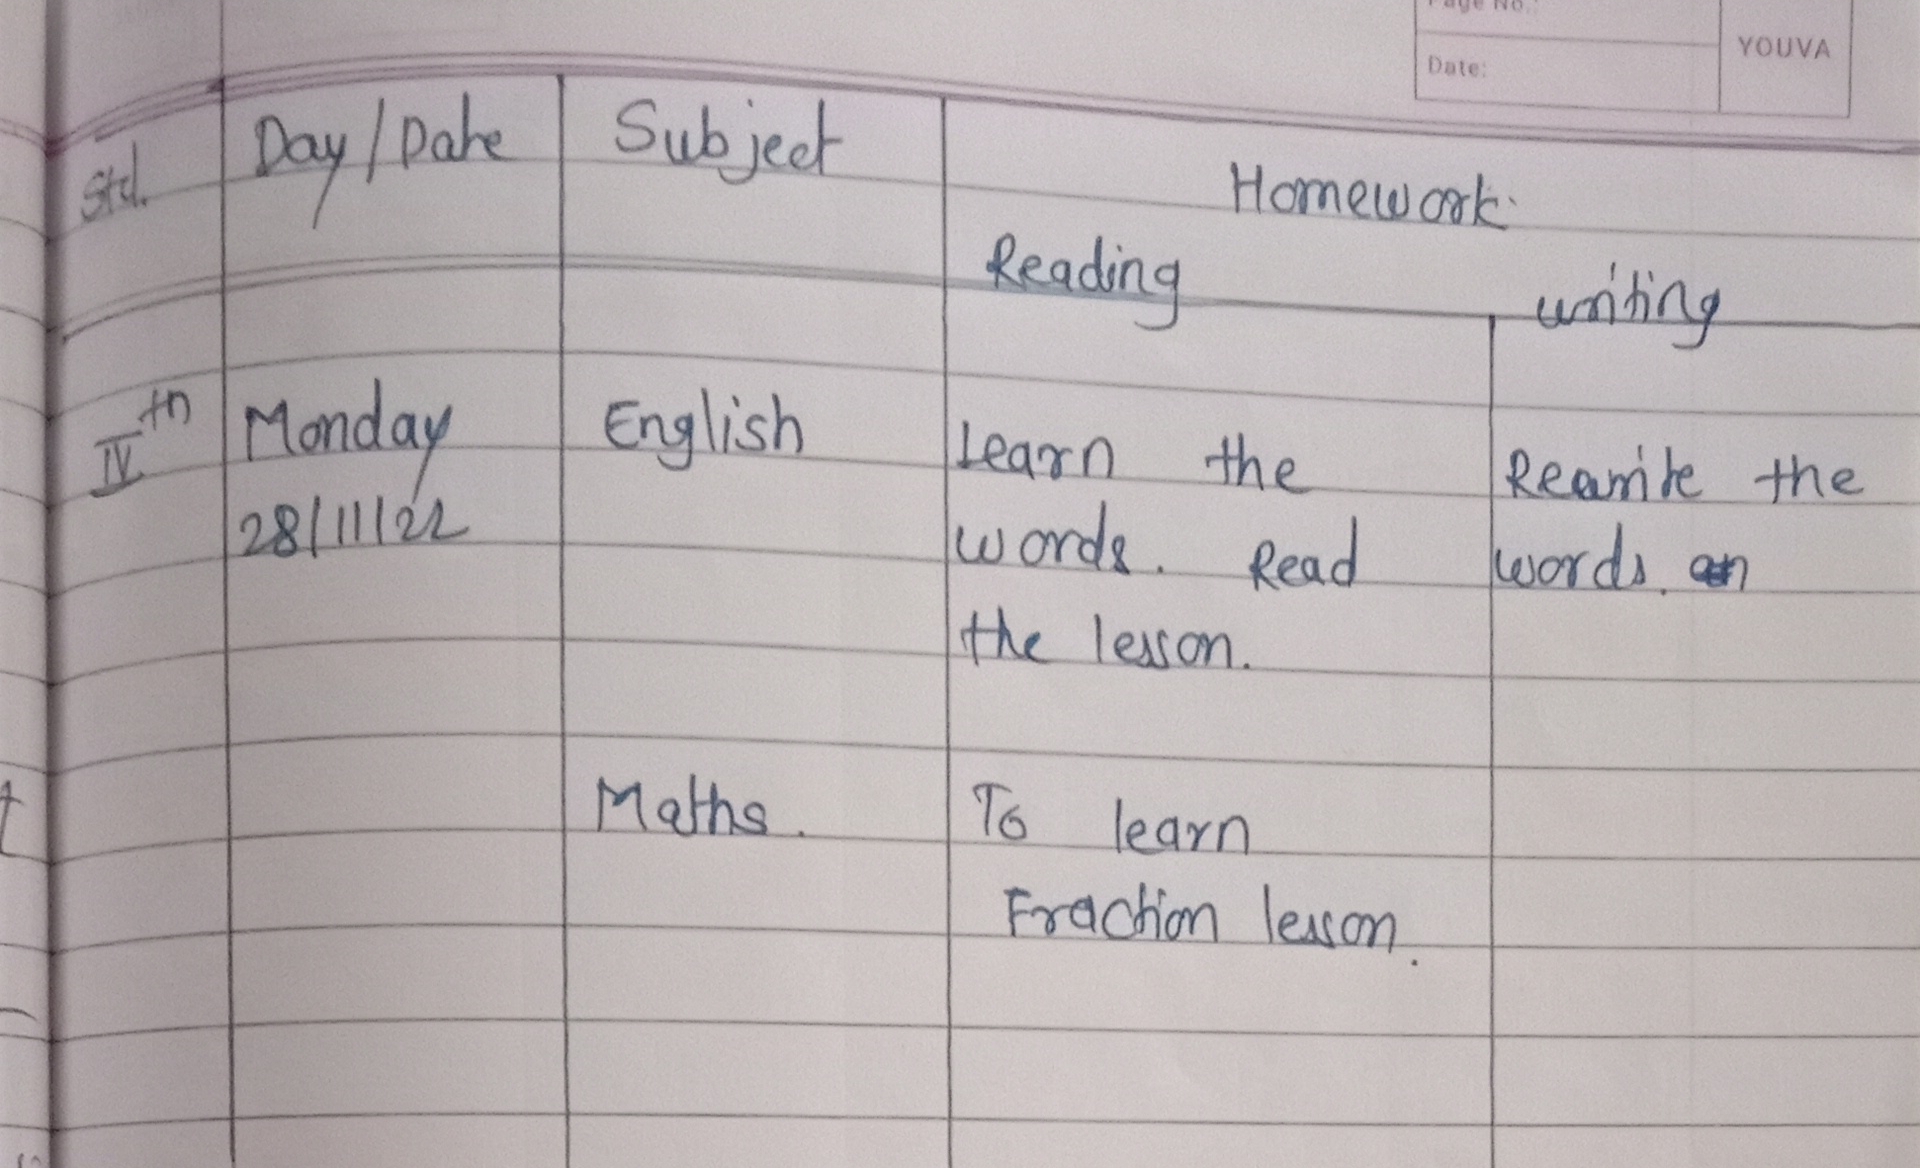 Page No.:
Date:
YOUVA
Std. Day/Date Subject Homework.
Reading writing
IVth Monday English Learn the Rewrite the
28/11/22 words. Read words.
the lesson.
Maths. To learn
Fraction lesson.